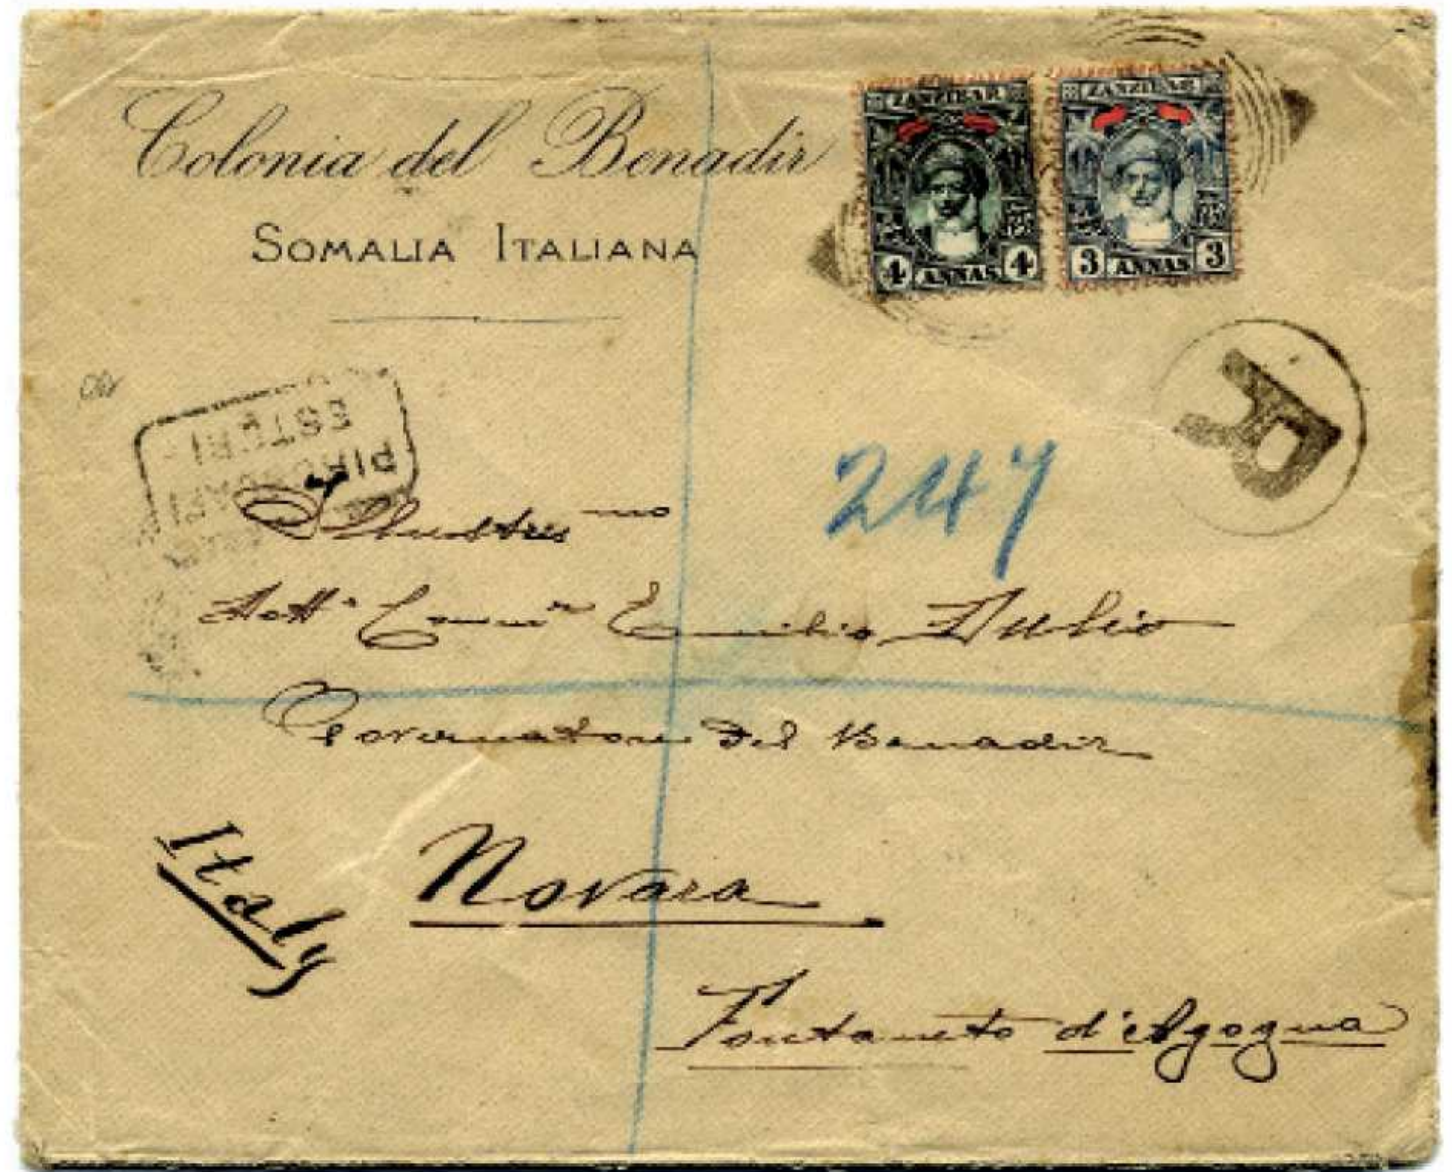 Colonia del Benadir
SOMALIA ITALIANA
ZANZIBAR
4 ANNAS 4
ZANZIBAR
3 ANNAS 3
R
PIROSCAFI
ESTERI
247
Illustris mo
Dott. Comm. Emilio Dulio
Governatore del Benadir
Italy
Novara
Fontaneto d'Agogna